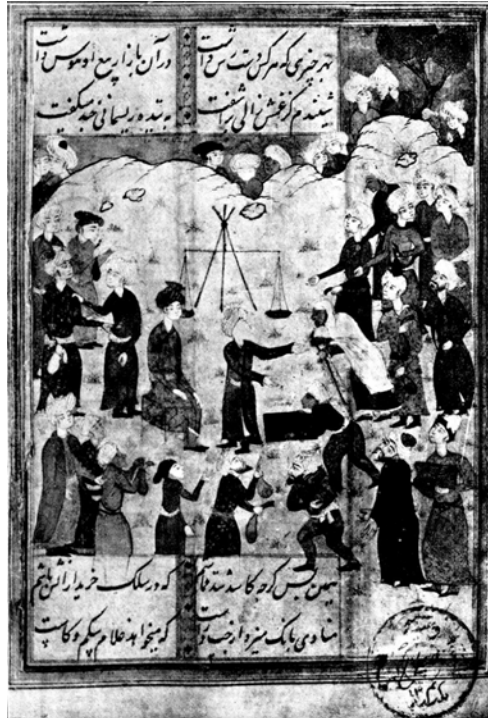 بهر چیزی که هر کس دست رس داشت در آن بازار بیع او هوس داشت
شنیدم کز غمش زالی بر آشفت تنیده ریسمانی چند میگفت
همین بس گرچه کاسد شد قماشم که در سلک خریدارانش باشم
منادی بانگ میزد از چپ و راست که میخواهد غلامی بی کم و کاست